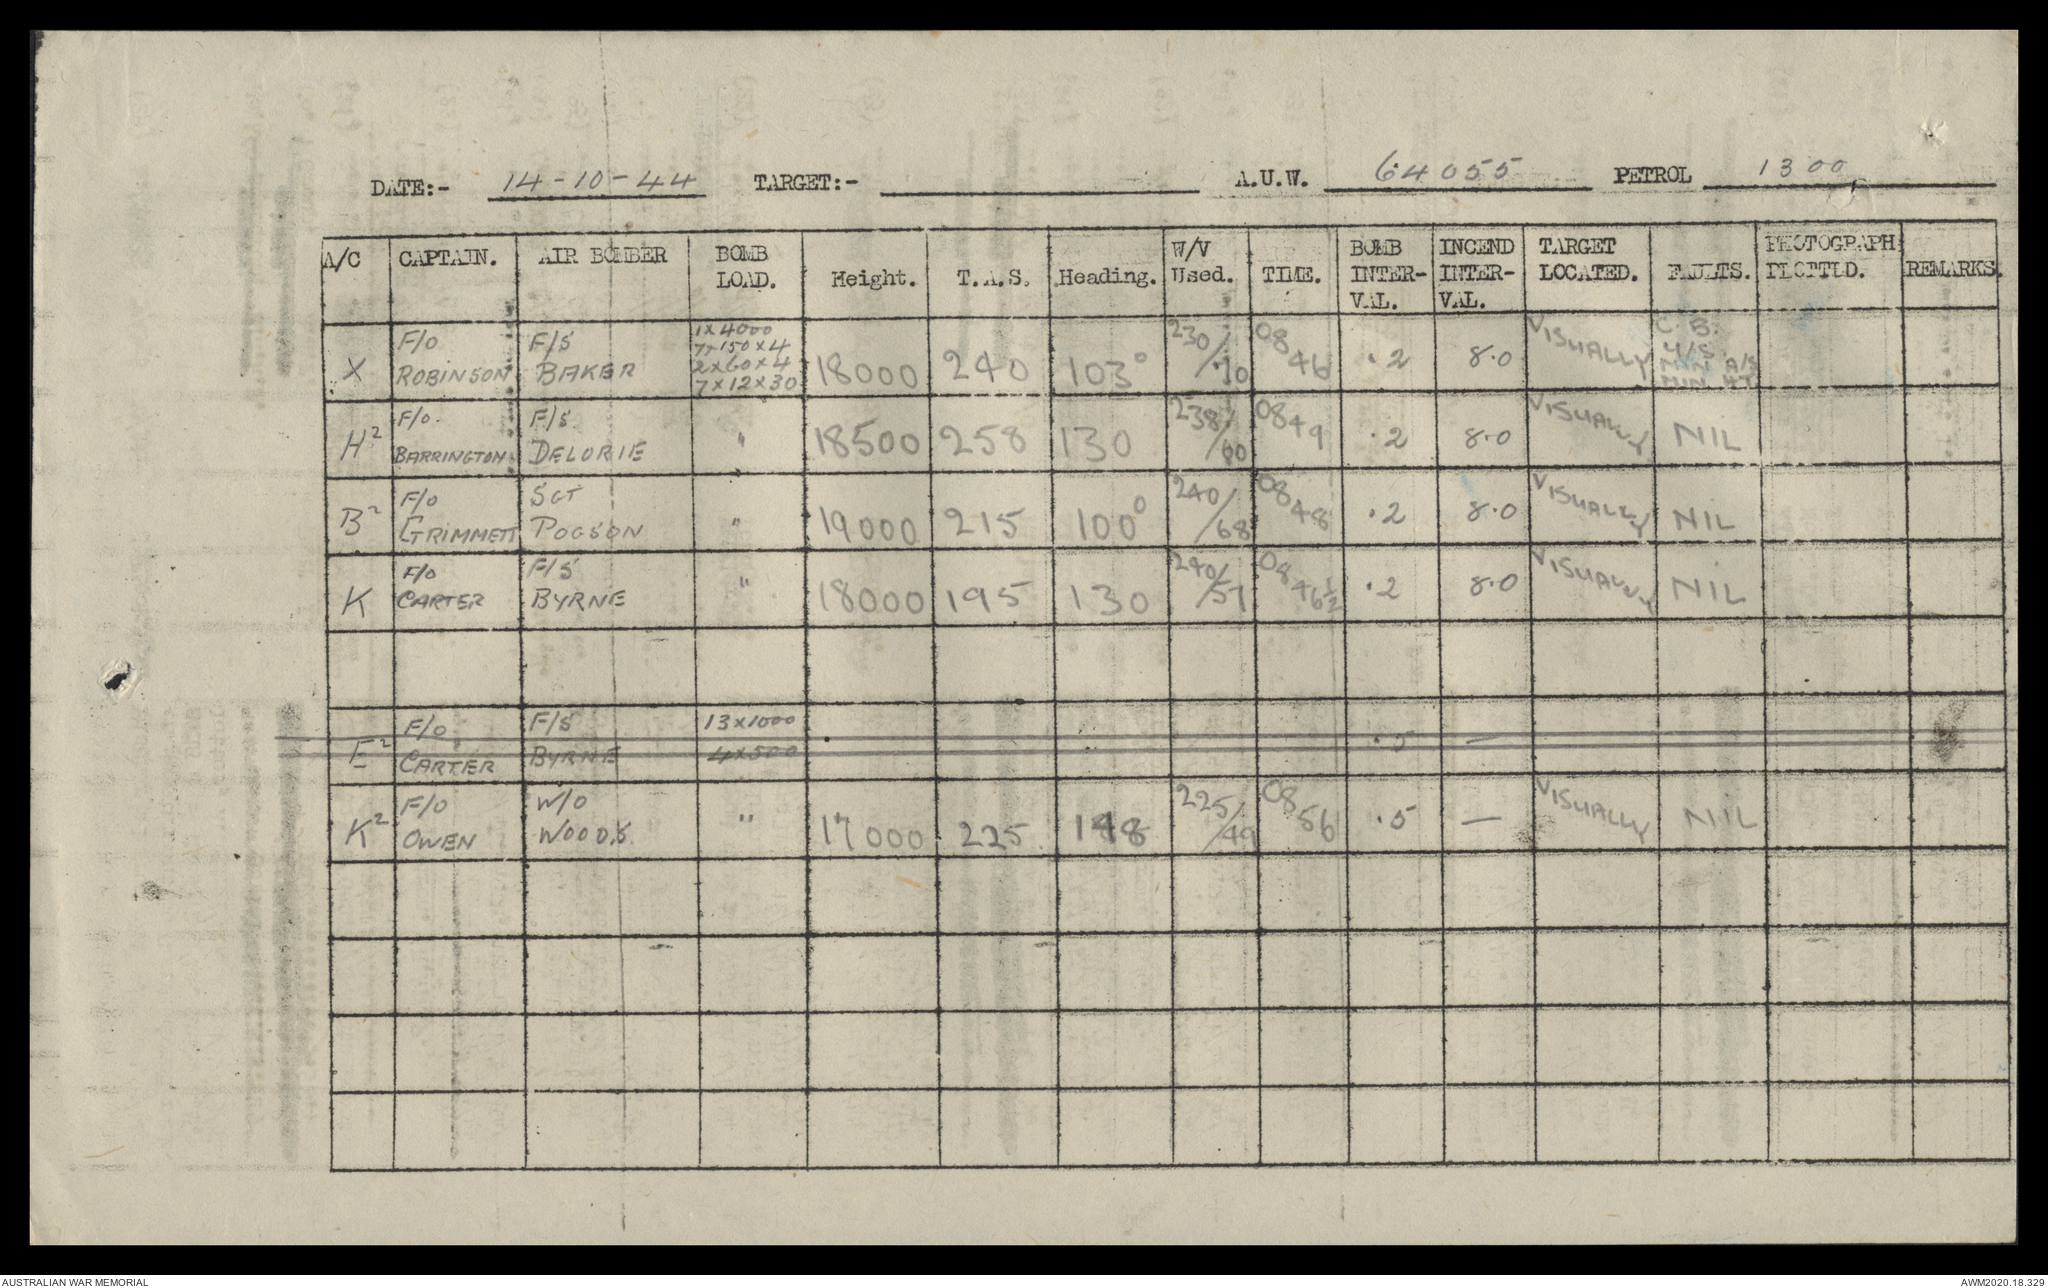 DATE:- 14-10-44 TARGET:- A.U.W. 64055 PETROL 1300
A/C CAPTAIN. AIR BOMBER BOMB LOAD. Height. T.A.S. Heading. W/V Used. TIME. BOMB INTER-VAL. INCEND INTER-VAL. TARGET LOCATED. FAULTS. PHOTOGRAPH PLOTTED. REMARKS.
X F/O ROBINSON F/S BAKER 1x4000 7x150x4 2x60x4 7x12x30 18000 240 103° 230/70 0846 .2 8.0 VISUALLY C.B. U/S MIN A/S MIN HT
H² F/O. BARRINGTON F/S. DELORIE " 18500 258 130 238/60 0849 .2 8.0 VISUALLY NIL
B² F/O GRIMMETT SGT POGSON " 19000 215 100° 240/68 0848 .2 8.0 VISUALLY NIL
K F/O CARTER F/S BYRNE " 18000 195 130 240/57 0846½ .2 8.0 VISUALLY NIL
E² F/O CARTER F/S BYRNE 13x1000 4x500 .5 —
K² F/O OWEN W/O WOODS " 17000 225 148 225/49 0856 .5 — VISUALLY NIL
AUSTRALIAN WAR MEMORIAL AWM2020.18.329